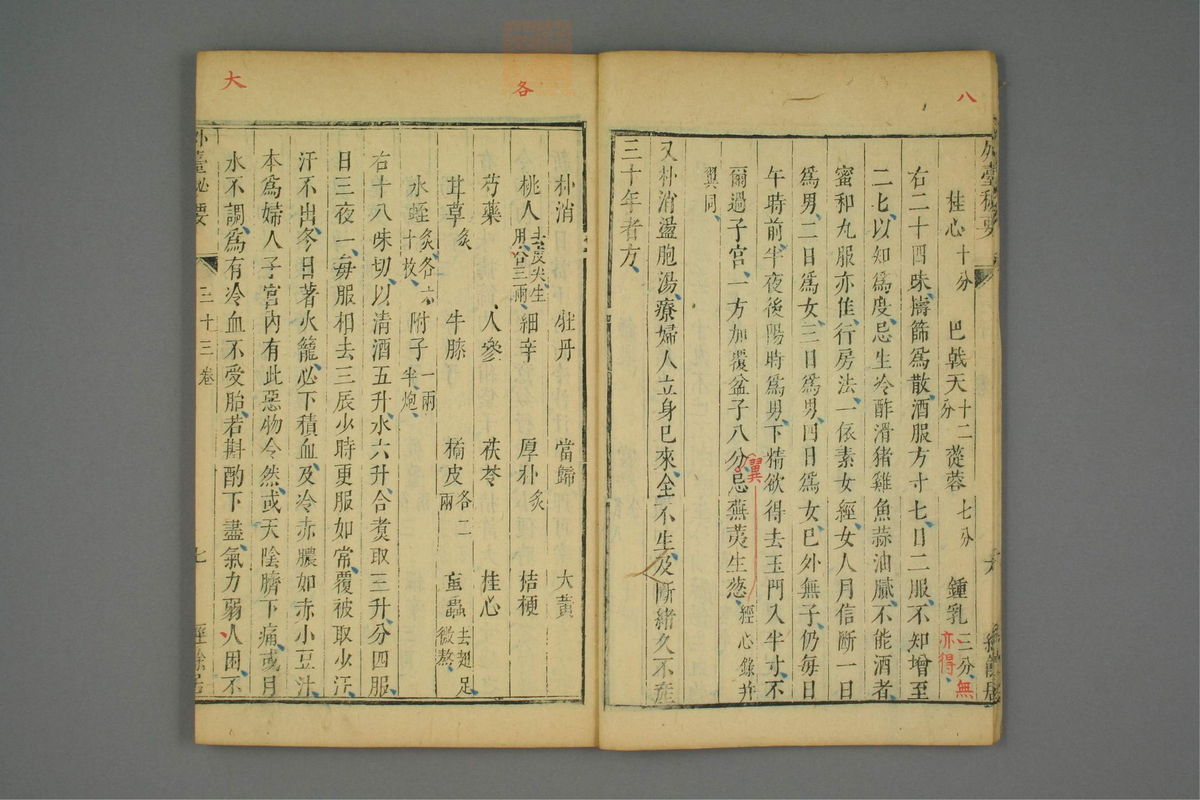 八
外臺秘要
桂心十分 巴戟天十二分 蓯蓉七分 鍾乳三分無亦得
右二十四味擣篩為散酒服方寸匕日二服不知增至
二匕以知為度忌生冷酢滑猪雞魚蒜油膩不能酒者
蜜和丸服亦佳行房法一依素女經女人月信斷一日
為男二日為女三日為男四日為女已外無子仍每日
午時前半夜後陽時為男下精欲得去玉門入半寸不
爾過子宮一方加覆盆子八分忌蕪荑生葱經心錄并
翼
翼同
又朴消盪胞湯療婦人立身已來全不生及斷緒久不產
三十年者方
各
大
朴消 牡丹 當歸 大黃
桃人去皮尖生用各三兩 細辛 厚朴炙 桔梗
芍藥 人參 茯苓 桂心
甘草炙 牛膝 橘皮各二兩 䖟蟲去翅足微熬
水蛭炙各六十枚 附子一兩半炮
右十八味切以清酒五升水六升合煑取三升分四服
日三夜一每服相去三辰少時更服如常覆被取少汗
汗不出冬日著火籠必下積血及冷赤膿如赤小豆汁
本為婦人子宮內有此惡物令然或天陰臍下痛或月
水不調為有冷血不受胎若斟酌下盡氣力弱人困不
外臺秘要 三十三卷 七 經餘居